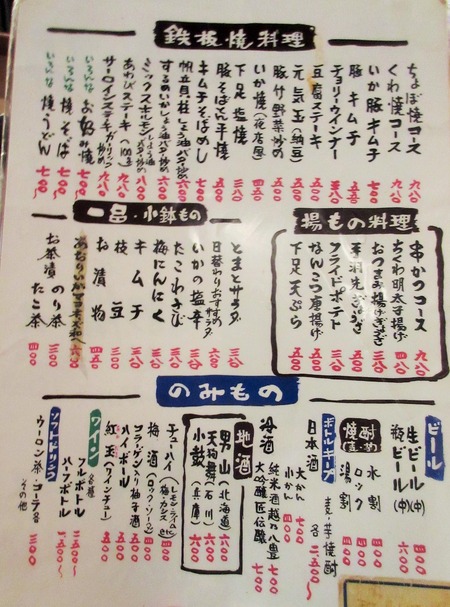 鉄板焼料理
ちょぼ焼コース 九八〇
くわ焼コース 九八〇
いか豚キムチ 七〇〇
豚キムチ 五五〇
チョリーウインナー 五〇〇
豆腐ステーキ 五〇〇
元気玉(納豆) 五〇〇
豚汁野菜炒め 五〇〇
いか焼(夜店風) 四五〇
下足塩焼 三八〇
豚そばめし平焼
キムチそばめし
帆立貝柱しょう油バター炒め
するめいかしょう油バター炒め 六〇〇
ミックスホルモンしょう油バター炒め 八〇〇
あわびステーキ
サーロインステーキ 九八〇
いろんなお好み焼 七〇〇〜
いろんな焼そば 七〇〇〜
いろんな焼うどん 七〇〇〜
揚もの料理
串かつコース 九八〇
ちくわ明太子揚げ 四八〇
おつまみ揚げぎょうざ 三五〇
手羽先ぎょうざ 五〇〇
フライドポテト 三八〇
なんこつ唐揚げ 五〇〇
下足天ぷら 五〇〇
一品・小鉢もの
とまとサラダ 三八〇
日替わりおすすめサラダ 六〇〇
いかの塩辛 三八〇
たこわさび 三八〇
梅にんにく 三五〇
キムチ 三〇〇
枝豆 三〇〇
お漬物 四五〇
あぶりいかマヨネーズ和へ 六〇〇
お茶漬 のり茶 四〇〇
たこ茶
のみもの
ビール
生ビール(中) 四〇〇
瓶ビール(中) 六〇〇
焼酎(麦・芋)
水割 四〇〇
ロック 四〇〇
湯割 四〇〇
ボトルキープ
麦・芋焼酎 各 二、五〇〇〜
日本酒
大かん 七〇〇
小かん 四〇〇
冷酒
純米酒越乃八豊 七〇〇
大吟醸匠伝醸 七〇〇
地酒
男山(北海道) 六〇〇
天狗舞(石川) 六〇〇
小鼓(兵庫) 六〇〇
チューハイ(レモン・ライム 梅・カシス etc) 四〇〇
梅酒(ロック・ソーダ) 四〇〇
コラーゲン入り柚子酒 五〇〇
ハイボール 四〇〇
紅玉(ワインチュー) 四〇〇
ワイン
各種
フルボトル 二、五〇〇〜
ハーフボトル 一、五〇〇〜
ソフトドリンク
ウーロン茶・コーラ各 三〇〇
その他